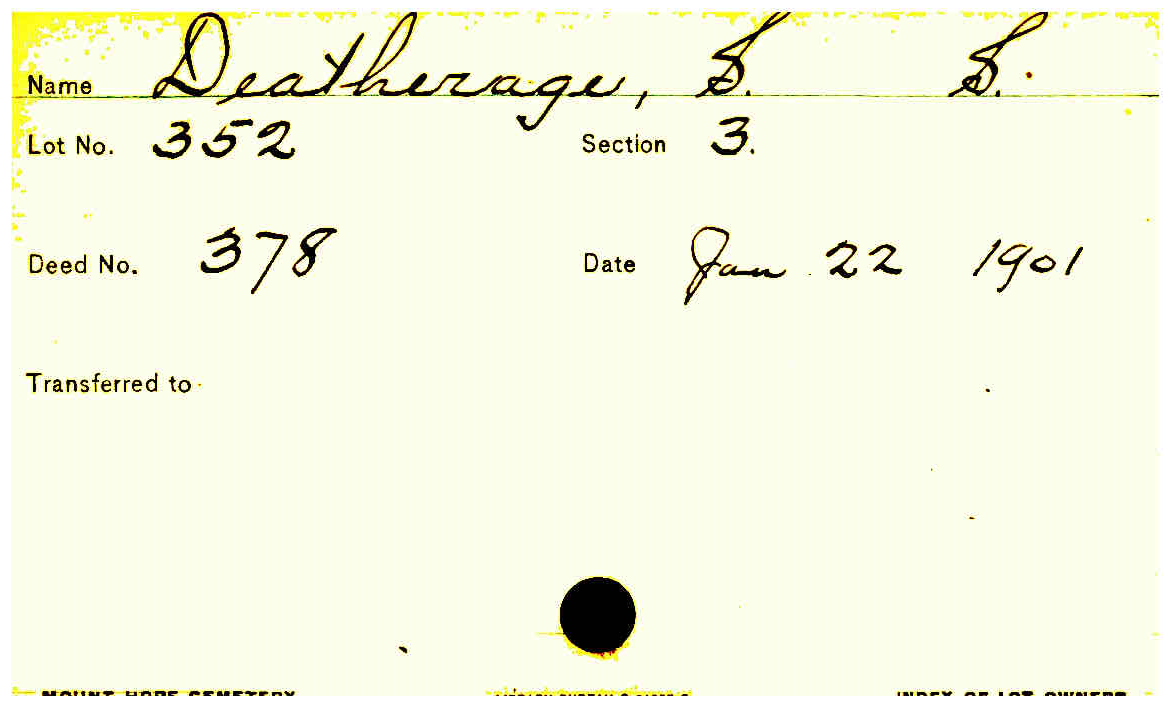 Name Deatherage, S. S.
Lot No. 352 Section 3.
Deed No. 378 Date Jan 22 1901
Transferred to
MOUNT HOPE CEMETERY INDEX OF LOT OWNERS